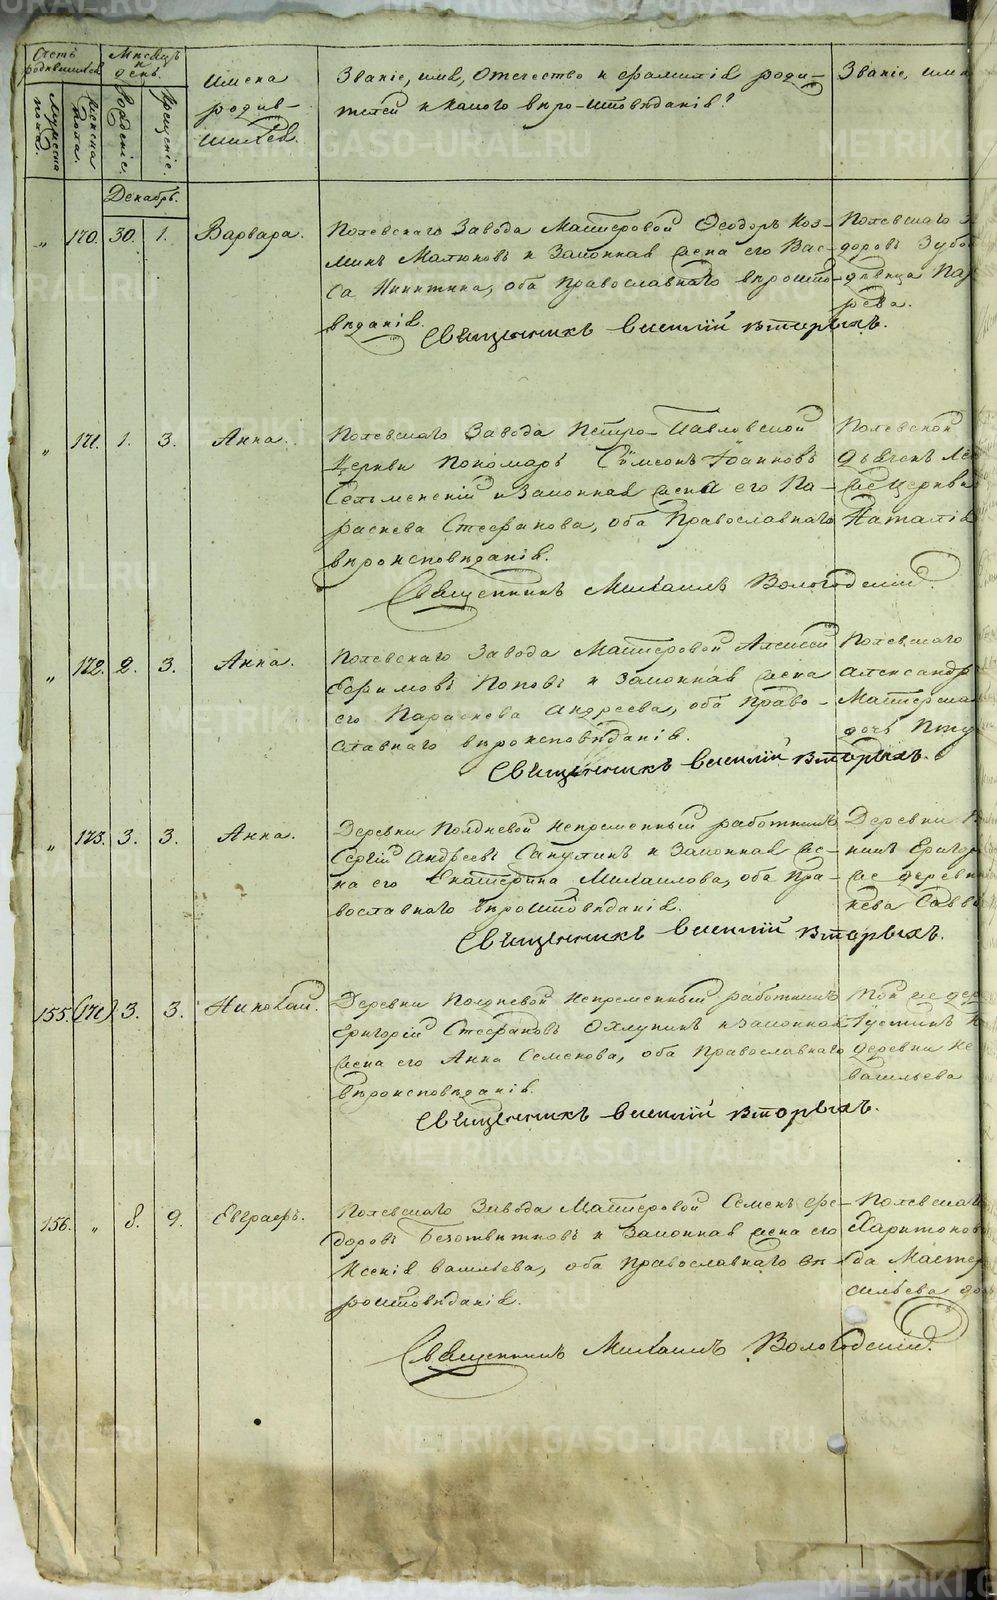 Счетъ родившихся
Мѣсяцъ и день.
Имена родив-шихся.
Званіе, имя, отечество и фамилія роди-
телей и какого вѣроисповѣданія?
Званіе, имя
Мужеска пола.
Женска пола.
Рожденіе.
Крещеніе.
Декабрь.
„ 170. 30. 1. Варвара.
Полевскаго Завода Мастеровой Ѳеодоръ Коз-
минъ Малюковъ и Законная жена его Вас-
са Никитина, оба Православнаго вѣроиспо-
вѣданія.
Священникъ Василій Вторыхъ.
Полевскаго
доровъ Зубо
дѣвица Пар
рева.
„ 171. 1. 3. Анна.
Полевскаго Завода Петро-Павловской
Церкви Пономарь Сѵмеонъ Іоанновъ
Сельменскій и Законная жена его Па-
раскева Стефанова, оба Православнаго
вѣроисповѣданія.
Священникъ Михаилъ Вологодскій.
Полевской
Дьячекъ
же Церкви
Наталія
„ 172. 2. 3. Анна.
Полевскаго Завода Мастеровой Алексей
Ефимовъ Поповъ и Законная жена
его Параскева Андреева, оба Право-
славнаго вѣроисповѣданія.
Священникъ Василій Вторыхъ.
Полевскаго
Александръ
Мастерска
дочь
„ 173. 3. 3. Анна.
Деревни Полдневой Непременный работникъ
Сергій Андреевъ Сапулинъ и Законная же-
на его Екатерина Михаилова, оба Пра-
вославнаго вѣроисповѣданія.
Священникъ Василій Вторыхъ.
Деревни
никъ Григор
же деревни
кева Савви
155. (171) 3. 3. Николай.
Деревни Полдневой Непременный работникъ
Григорій Стефановъ Охлупинъ и Законная
жена его Анна Семенова, оба Православнаго
вѣроисповѣданія.
Священникъ Василій Вторыхъ.
Той же дер
Густинъ
деревни Не
Васильева
156. „ 8. 9. Евграфъ.
Полевскаго Завода Мастеровой Семенъ Фе-
доровъ Безотвѣтновъ и Законная жена его
Ксенія Васильева, оба Православнаго вѣ-
роисповѣданія.
Священникъ Михаилъ Вологодскій.
Полевскаго
Харитонов
да Мастер
сильева доч
METRIKI.GASO-URAL.RU